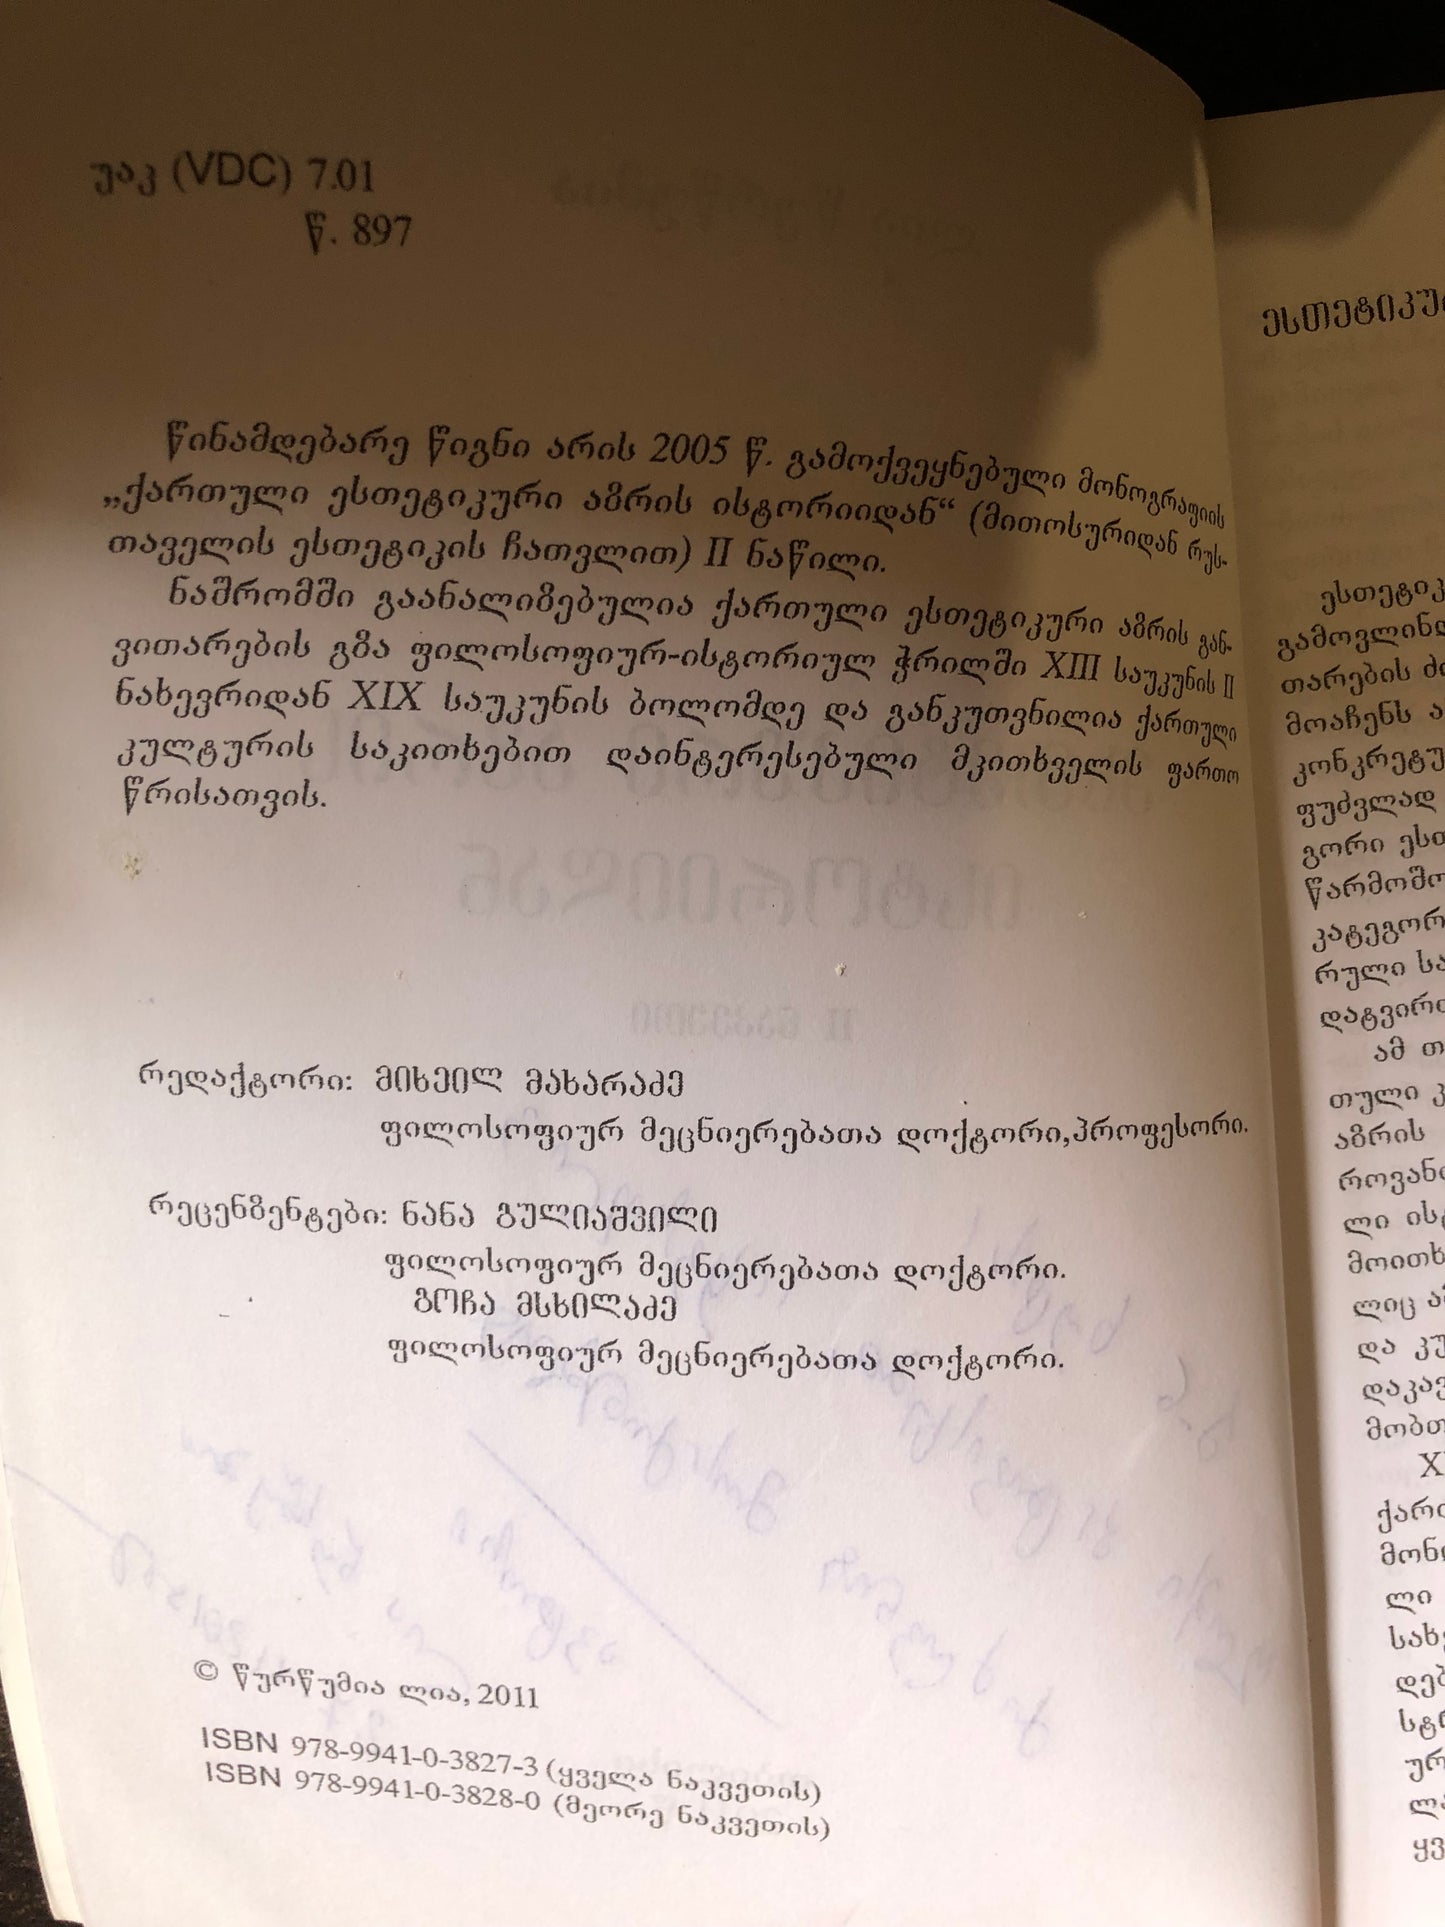 უაკ (VDC) 7.01
წ. 897
წინამდებარე წიგნი არის 2005 წ. გამოქვეყნებული მონოგრაფიის
„ქართული ესთეტიკური აზრის ისტორიიდან“ (მითოსურიდან რუს-
თაველის ესთეტიკის ჩათვლით) II ნაწილი.
ნაშრომში გაანალიზებულია ქართული ესთეტიკური აზრის გან-
ვითარების გზა ფილოსოფიურ-ისტორიულ ჭრილში XIII საუკუნის II
ნახევრიდან XIX საუკუნის ბოლომდე და განკუთვნილია ქართული
კულტურის საკითხებით დაინტერესებული მკითხველის ფართო
წრისათვის.
რედაქტორი: მიხეილ მახარაძე
ფილოსოფიურ მეცნიერებათა დოქტორი,პროფესორი.
რეცენზენტები: ნანა გულიაშვილი
ფილოსოფიურ მეცნიერებათა დოქტორი.
გოჩა მსხილაძე
ფილოსოფიურ მეცნიერებათა დოქტორი.
© წურწუმია ლია, 2011
ISBN 978-9941-0-3827-3 (ყველა ნაკვეთის)
ISBN 978-9941-0-3828-0 (მეორე ნაკვეთის)
გამოვლინდ
თარების
მოაჩენს
კონკრეტუ
ფუძვლად
გორი
წარმოშო
კატეგორ
რული
დატვირ
ამ
თული
აზრის
როვან
ლი
მოითხ
ლიც
და
დაკავ
მობ
ქართ
მონ
ლი
სახ
დებ
სტ
ურ
ყვ